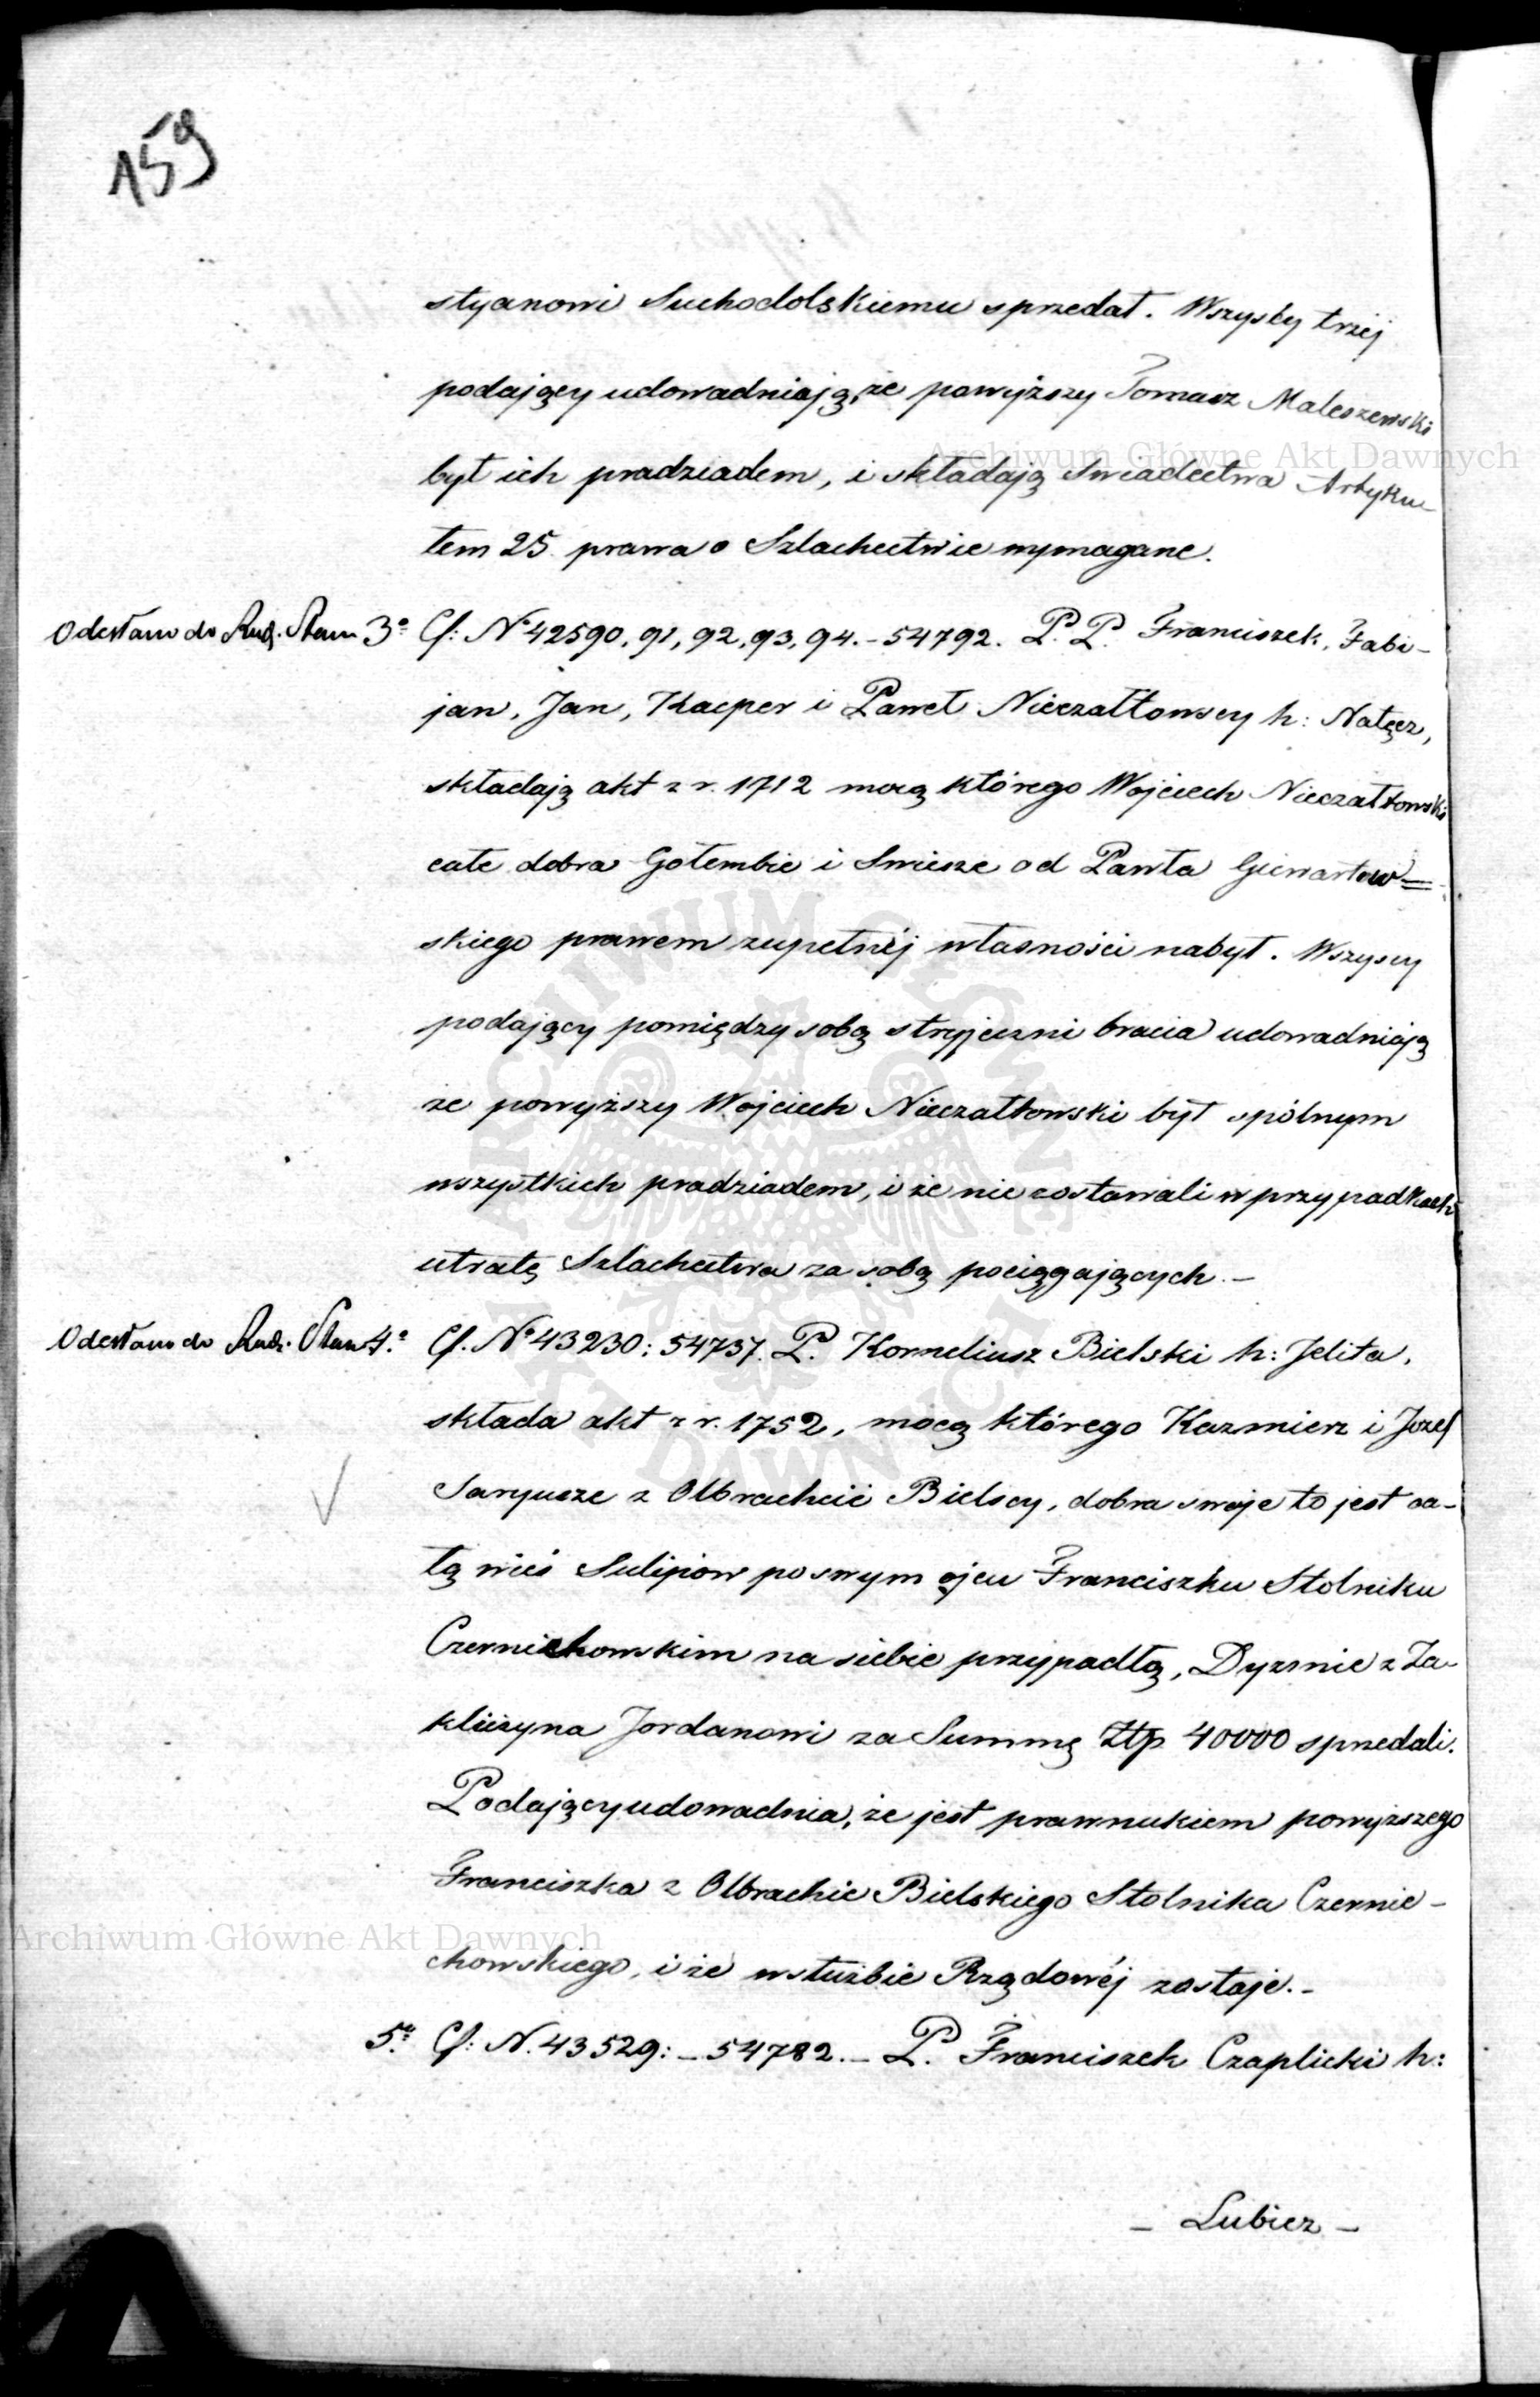 159
styanowi Suchodolskiemu sprzedał. Wszyscy trzéj
podający udowadniają, że powyższy Tomasz Maleszewski
był ich pradziadem, i składają Swiadectwa Artyku-
łem 25 prawa o Szlachectwie wymagane.
Odesłano do Rad. Stanu 3º Cf: Nº 42590, 91, 92, 93, 94. - 54792. P. P. Franciszek, Fabi-
jan, Jan, Kacper i Paweł Nieczałkowscy h: Nałęcz,
składają akt z r. 1712 mocą którego Wojciech Nieczałkowski
całe dobra Gołembie i Smiesze od Pawła Giewartow=
skiego prawem zupełnéj własności nabył. Wszyscy
podający pomiędzy sobą stryjeczni bracia udowadniają
że powyższy Wojciech Nieczałkowski był spólnym
wszystkich pradziadem, i że nie zostawali w przypadkach
utratę Szlachectwa za sobą pociągających. -
Odesłano do Rad. Stanu 4.º Cf. Nº 43230: 54737. P. Korneliusz Bielski h: Jelita,
składa akt z r. 1752, mocą którego Kazmierz i Jozef
Saryusze z Olbrachcic Bielscy, dobra swoje to jest ca-
łą wieś Sulipow po swym ojcu Franciszku Stolniku
Czerniechowskim na siebie przypadłą, Dyzmie z Za-
kliczyna Jordanowi za Summę Złp 40000 sprzedali.
Podający udowadnia, że jest prawnukiem powyższego
Franciszka z Olbrachcic Bielskiego Stolnika Czernie-
chowskiego, i że w służbie Rządowéj zostaje. -
5.º Cf: N. 43529: - 54782. - P. Franciszek Czaplicki h:
- Lubicz -
Archiwum Główne Akt Dawnych
Archiwum Główne Akt Dawnych
ARCHIWUM GŁÓWNE AKT DAWNYCH